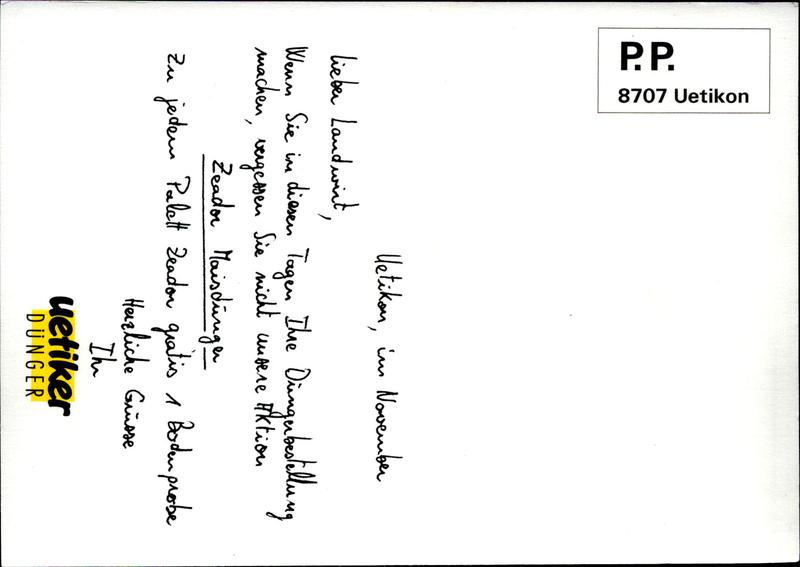 P.P.
8707 Uetikon
Uetikon, im November
Lieber Landwirt,
Wenn Sie in diesen Tagen Ihre Düngerbestellung
machen, vergessen Sie nicht unsere Aktion
Zeador Maisdünger
Zu jedem Palett Zeador gratis 1 Bodenprobe
Herzliche Grüsse
Ihr
uetiker
DÜNGER